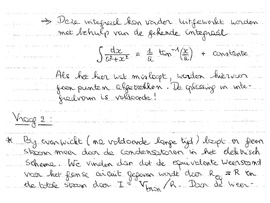 → Deze integraal kan verder uitgewerkt worden
met behulp van de gekende integraal
∫ dx/(a²+x²) = 1/a tan⁻¹(x/a) + constante
Als het hier wat misloopt, worden hiervoor
geen punten afgetrokken. De oplossing in inte-
graalvorm is voldoende!
Vraag 2:
* Bij evenwicht (na voldoende lange tijd) loopt er geen
stroom meer door de condensatoren in het elektrisch
schema. We vinden dan dat de equivalente weerstand
voor het ganse circuit gegeven wordt door R = R en
de totale stroom door I = /R. Door de weer-